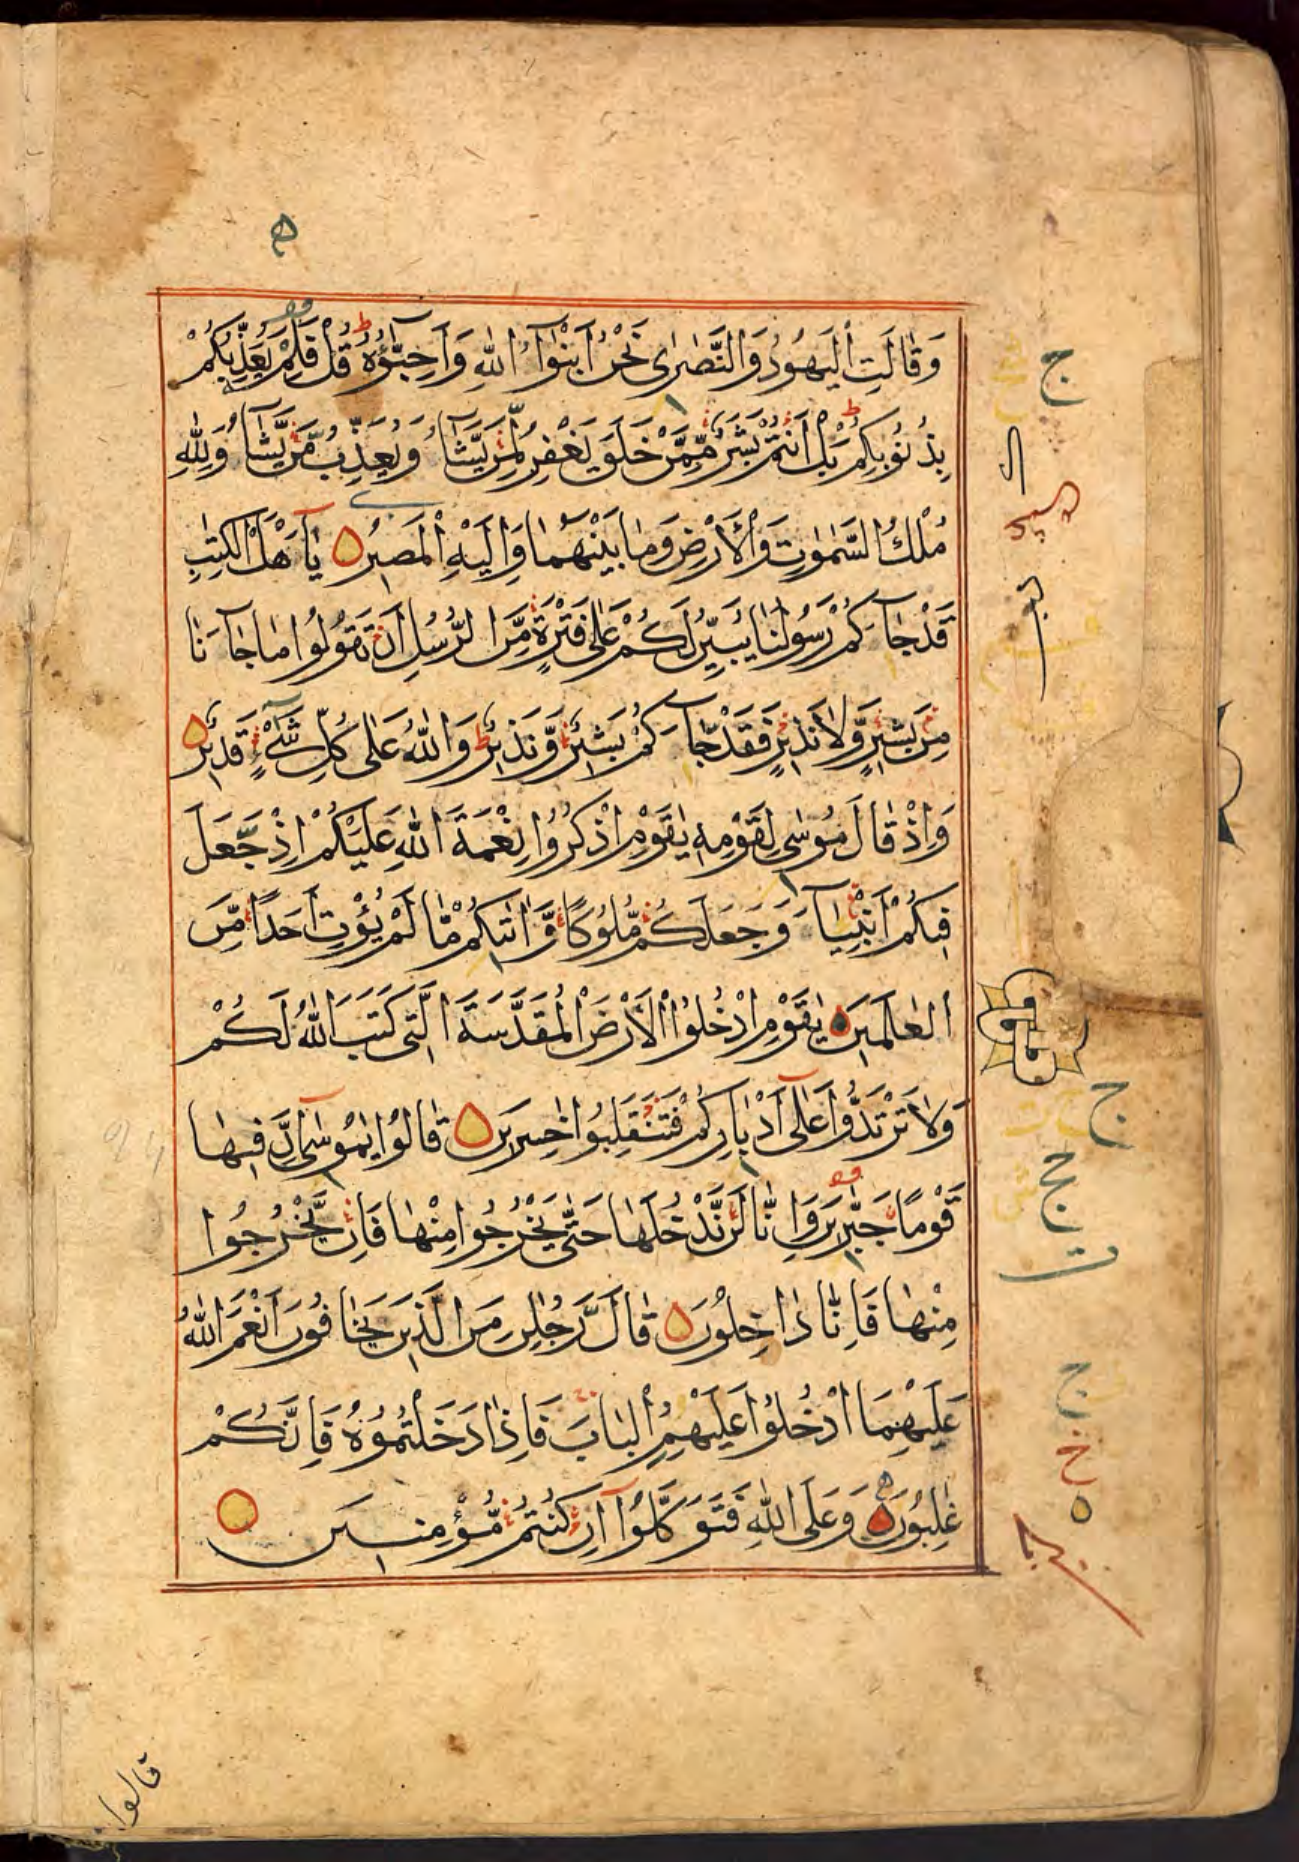 ه
وَقَالَتِ الْيَهُودُ وَالنَّصٰرٰى نَحْنُ اَبْنٰٓؤُا اللّٰهِ وَاَحِبَّٓاؤُهٗ ط قُلْ فَلِمَ يُعَذِّبُكُمْ
بِذُنُوبِكُمْ ط بَلْ اَنْتُمْ بَشَرٌ مِّمَّنْ خَلَقَ يَغْفِرُ لِمَنْ يَّشَآءُ وَيُعَذِّبُ مَنْ يَّشَآءُ وَلِلّٰهِ
مُلْكُ السَّمٰوٰتِ وَالْاَرْضِ وَمَا بَيْنَهُمَا وَاِلَيْهِ الْمَصِيْرُ يٰٓاَهْلَ الْكِتٰبِ
قَدْ جَآءَكُمْ رَسُولُنَا يُبَيِّنُ لَكُمْ عَلٰى فَتْرَةٍ مِّنَ الرُّسُلِ اَنْ تَقُولُوا مَا جَآءَنَا
مِنْ بَشِيْرٍ وَّلَا نَذِيْرٍ فَقَدْ جَآءَكُمْ بَشِيْرٌ وَّنَذِيْرٌ ط وَاللّٰهُ عَلٰى كُلِّ شَیْءٍ قَدِيْرٌ
وَاِذْ قَالَ مُوْسٰى لِقَوْمِهٖ يٰقَوْمِ اذْكُرُوا نِعْمَةَ اللّٰهِ عَلَيْكُمْ اِذْ جَعَلَ
فِيْكُمْ اَنْبِيَآءَ وَجَعَلَكُمْ مُّلُوْكًا وَّاٰتٰىكُمْ مَّا لَمْ يُؤْتِ اَحَدًا مِّنَ
الْعٰلَمِيْنَ يٰقَوْمِ ادْخُلُوا الْاَرْضَ الْمُقَدَّسَةَ الَّتِى كَتَبَ اللّٰهُ لَكُمْ
وَلَا تَرْتَدُّوا عَلٰٓى اَدْبَارِكُمْ فَتَنْقَلِبُوا خٰسِرِيْنَ قَالُوا يٰمُوْسٰٓى اِنَّ فِيْهَا
قَوْمًا جَبَّارِيْنَ وَاِنَّا لَنْ نَّدْخُلَهَا حَتّٰى يَخْرُجُوا مِنْهَا فَاِنْ يَّخْرُجُوا
مِنْهَا فَاِنَّا دَاخِلُوْنَ قَالَ رَجُلٰنِ مِنَ الَّذِيْنَ يَخَافُوْنَ اَنْعَمَ اللّٰهُ
عَلَيْهِمَا ادْخُلُوا عَلَيْهِمُ الْبَابَ فَاِذَا دَخَلْتُمُوْهُ فَاِنَّكُمْ
غٰلِبُوْنَ وَعَلَى اللّٰهِ فَتَوَكَّلُوٓا اِنْ كُنْتُمْ مُّؤْمِنِيْنَ
ج
ج
ج
خ
قالوا